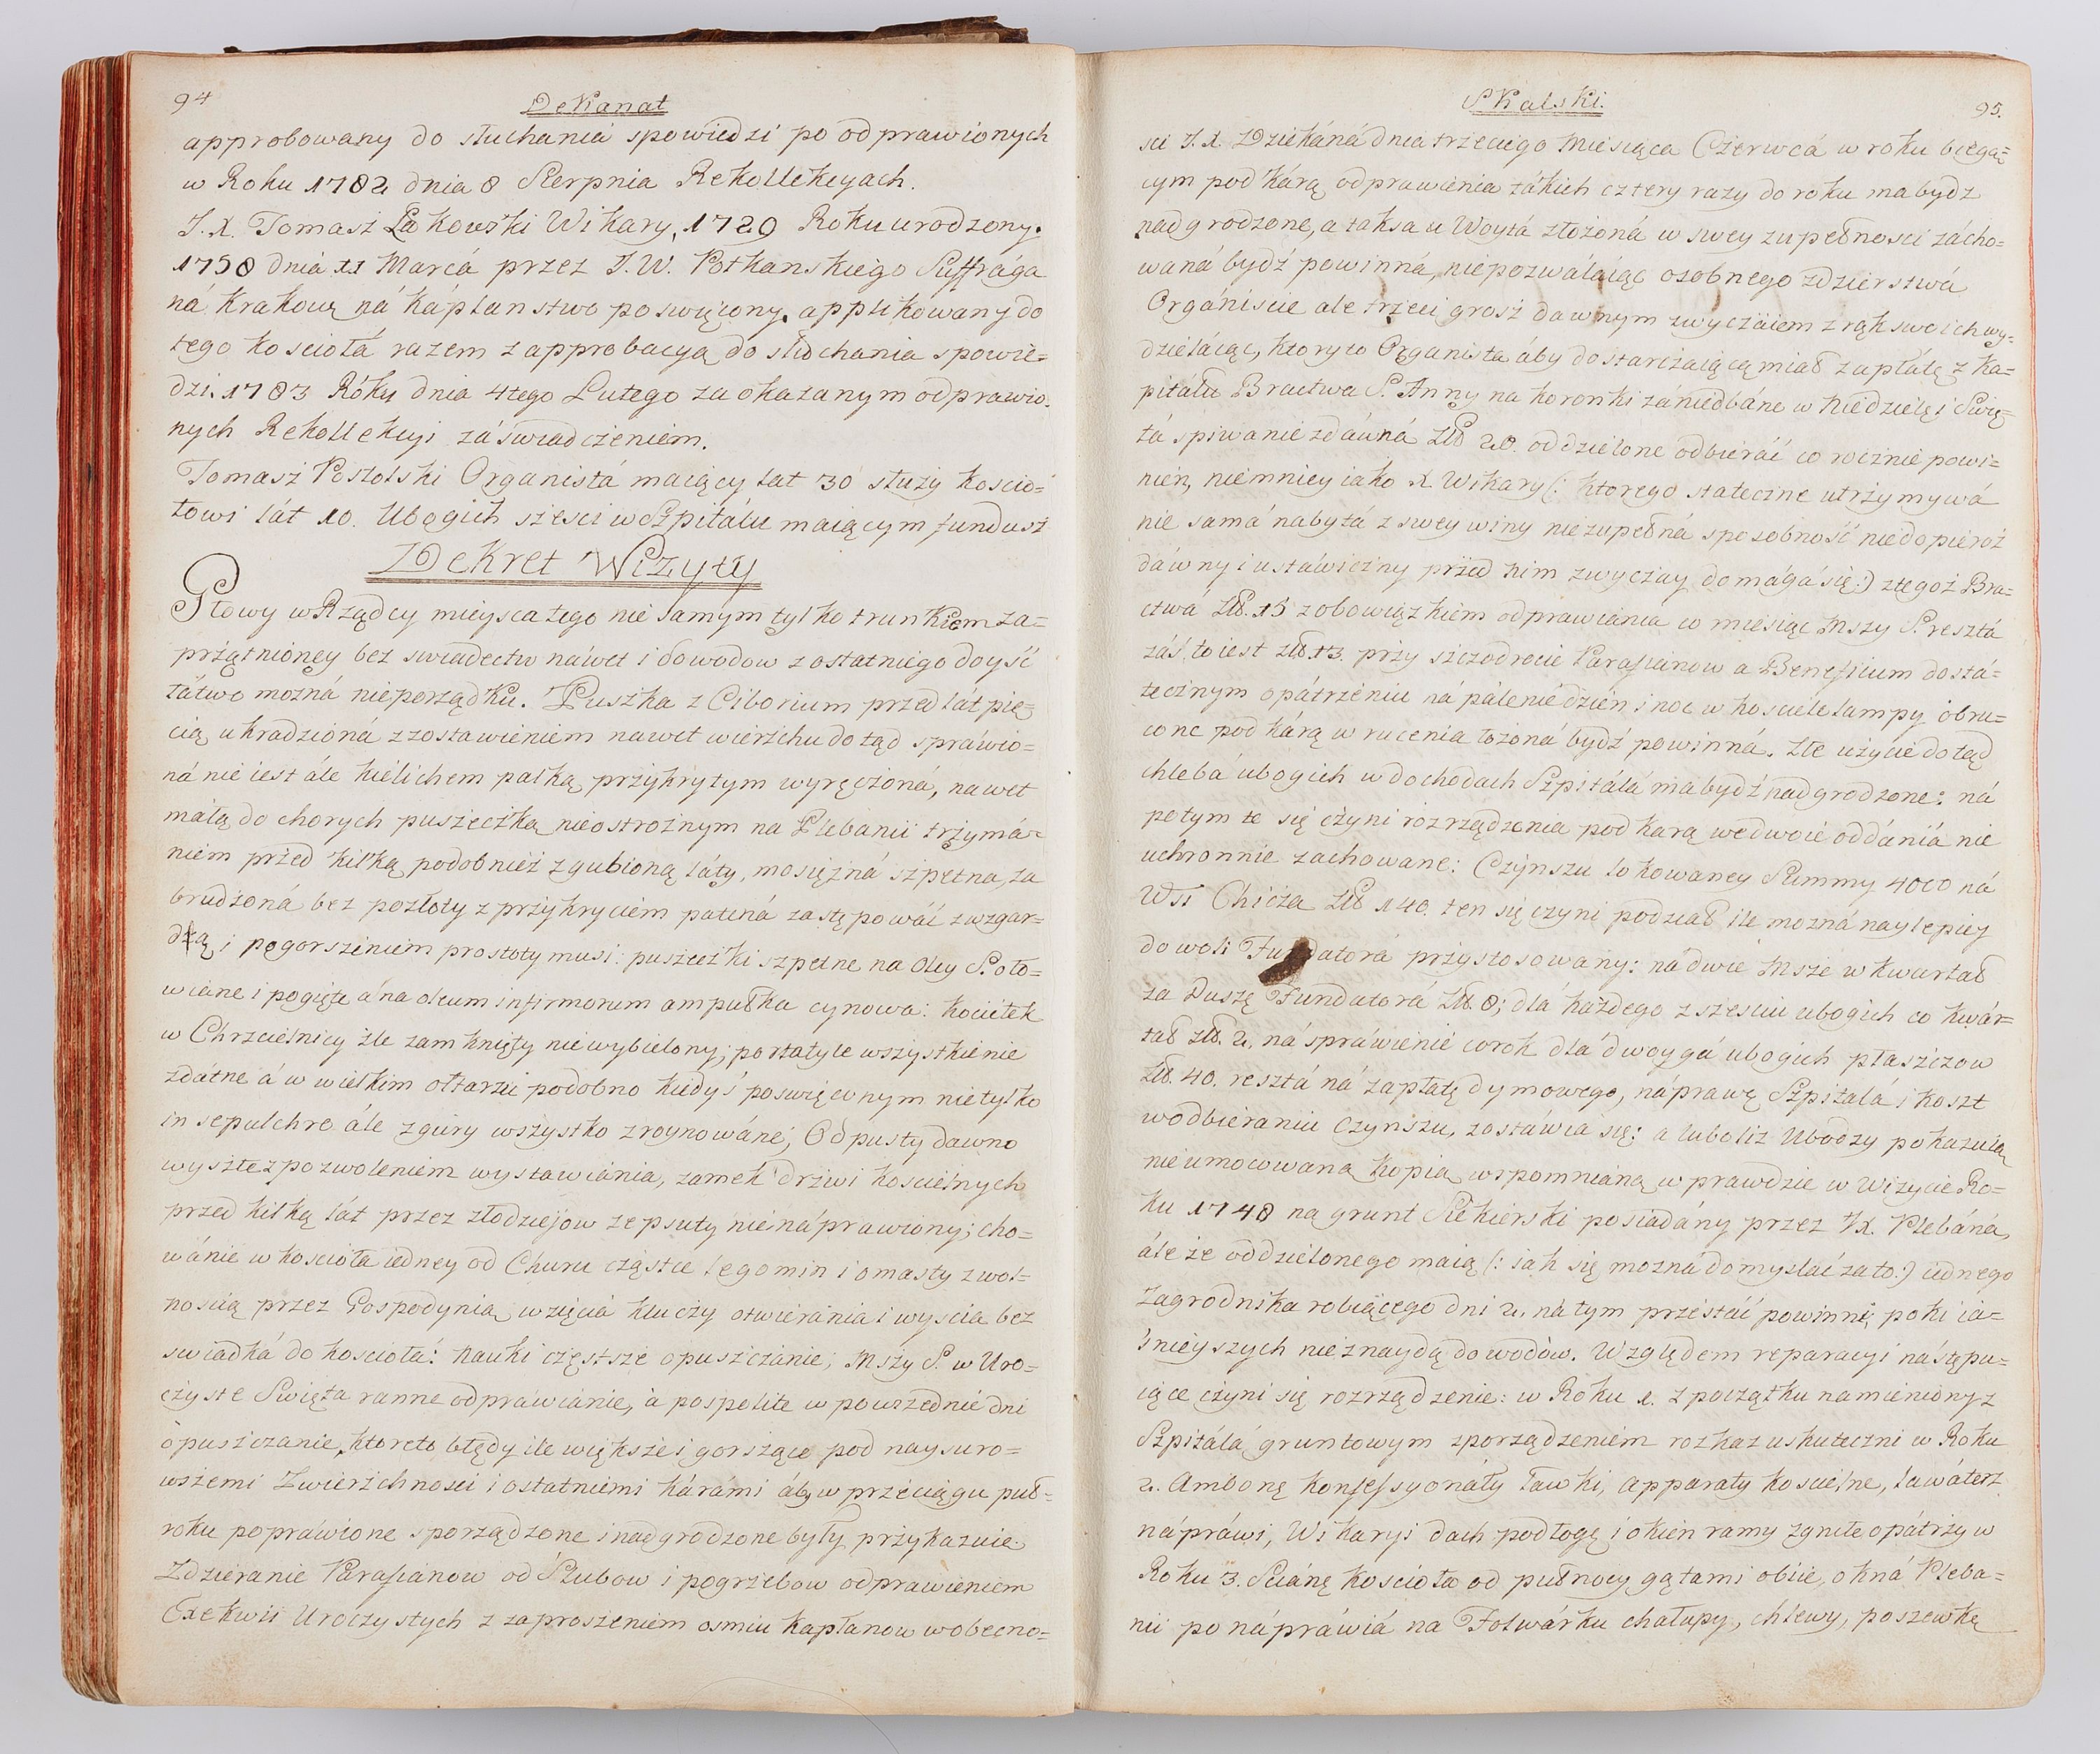 94
Dekanat
approbowany do słuchania spowiedzi po odprawionych
w Roku 1782 dnia 8 Sierpnia Rekollekcyach.
J.X. Tomasz Wikary, 1729 Roku urodzony.
1758 dniá 11 Marcá przez J.W. Potkanskiego Suffrága
ná Krakowę ná káplanstwo poswięcony. applikowany do
tego kosciołá razem z approbacyą do słuchania spowie=
dzi. 1783 Róku dnia 4tego Lutego za okazanym odprawio.
nych Rekollekcyi záświadczeniem.
Tomasz Postolski Organistá maiący lat 30 służy koscio=
łowi lát 10. Ubogich sześci w Szpitálu maiącym fundusz
Dekret Wizyty
Głowy w Rządcy mieysca tego nie samym tylko trunkiem za=
prżątnioney bez swiadectw náwet i dowodow z ostatniego doyść
łátwo mozná nieporządku. Puszka z Ciborium przed lát pię=
cią ukradzioná z zostawieniem nawet wierzchu dotąd spráwio=
ná nie iest ále kielichem pałką prżykrytym wyręczoná, nawet
máłą do chorych puszeczką nieostroznym na Plebanii trzymá=
niem przed kilką podobnież zgubioną láty, mosięzná szpetna, za
brudzoná bez pozłoty z prżykryciem pateną zastępowáć z wzgar=
dzą i pogorszeniem prostoty musi: puszeczki szpetne na Oley S. oło=
wiane i pogięte á na oleum infirmorum ampułka cynowa: kociełek
w Chrzcielnicy źle zamknięty niewybielony; portatyle wszystkie nie
zdátne á w wielkim ołtarzu podobno kiedyś poswięconym nietylko
in sepulchro ále z gury wszystko zroynowáne; Odpusty dawno
wyszłe z pozwoleniem wystawiánia, zamek drzwi kościelnych
przed kilką lát przez złodziejow zepsuty nie náprawiony; cho=
wánie w kosciola iedney od Churu cząstce legomin i omasty z wol=
noscią przez Gospodynią wzięcia kluczy otwierania i wyscia bez
swiadká do kosciołá: nauki częstsze opuszczánie; Mszy S. w Uro=
czyste Swięta ranne odpráwianie, á pospolite w powszednie dni
opuszczanie, ktoreto błędy ile większe i gorszące pod naysuro=
wszemi Zwierzchnosci i ostatniemi kárámi áby w przeciągu puł=
roku popráwione sporządzone i nadgrodzone były przykazuie.
Zdzieranie Parafianow od Szlubow i pogrzebow odprawieniem
Exekwii Uroczystych z zaproszeniem osmiu kapłanow wobecno=
Skalski.
95.
sci J.X. Dziekáná dnia trzeciego Miesiąca Czerwcá w roku biegą=
cym pod kárą odprawienia tákich cztery razy do roku ma bydz
nadgrodzone, a taksa u Woytá złożoná w swey zupełnosci zácho=
waná bydź powinná, niepozwalaiąc osobnego zdzierstwá
Orgániscie ale trzeci grosz dawnym zwyczáiem z rąk swoich wy=
dzieláiąc, ktoryto Organista áby dostarczaiącą miał zapłátę z Ka=
pitáłu Bractwa S. Anny na koronki zániedbáne w Niedzielę i Swię=
tá spiwanie zdáwná Złł 20. oddzielone odbieráć co rocznie powi=
nien, niemniey iako X. Wikary (: ktorego stateczne utrzymywá
nie samá nabytá z swey winy niezupełná sposobność niedopieroż
dáwny i ustáwiczny przed nim zwyczay domágá się:) z tegoż Bra=
ctwá Złł. 15 z obowiązkiem odprawiania co miesiąc Mszy S. resztá
záś, to iest złł. 13. przy szczodrocie Parafianow a Beneficium dostá=
tecznym opátrzeniu ná pálenie dzien i noc w kosciele lampy obru=
cone pod kárą wrucenia łożoná bydź powinná. Złe użycie dotąd
chlebá ubogich w dochodach Szpitálá má bydź nadgrodzone: ná
potym te się czyni rozrządzenia pod karą wedwoie oddániá nie
uchronnie zachowane: Czynszu lokowaney Summy 4000 ná
Wsi Chicza Złł 140. ten się czyni podział ile mozná naylepiey
do woli Fundatorá przystosowany: ná dwie Msze w kwartał
za Duszę Fundatorá Złł. 8; dlá każdego z sześciu ubogich co kwár=
tał złł. 2, ná spráwienie corok dlá dwoygá ubogich płaszczow
Złł. 40. resztá ná zapłátę dymowego, náprawę Szpitalá i koszt
w odbieraniu Czynszu, zostáwia się: a lubo liż Ubodzy pokazuią
nieumocowaną kopią wspomnianą w prawdzie w Wizycie Ro=
ku 1748 na grunt Siekierski posiadány przez JX. Plebáná,
ále że oddzielonego maią (: iak się mozná domyślać za to:) iednego
Zagrodnika robiącego dni 2, na tym przestáć powinni, poki ia=
śnieyszych nie znaydą dowodów. Względem reparacyi nástępu=
iące czyni się rozrządzenie: w Roku 1. z początku namienióny z
Szpitálá gruntowym zporządzeniem rozkaz uskuteczni w Roku
2. Ambonę konfessyonáły ławki, apparaty koscielne, lawáterz
nápráwi, Wikaryi dach podłogę i okien ramy zgniłe opátrzy w
Roku 3. Sciánę kosciołá od pułnocy gątami obiie, okná Pleba=
nii po nápráwiá na Folwárku chałupy, chlewy, poszewkę